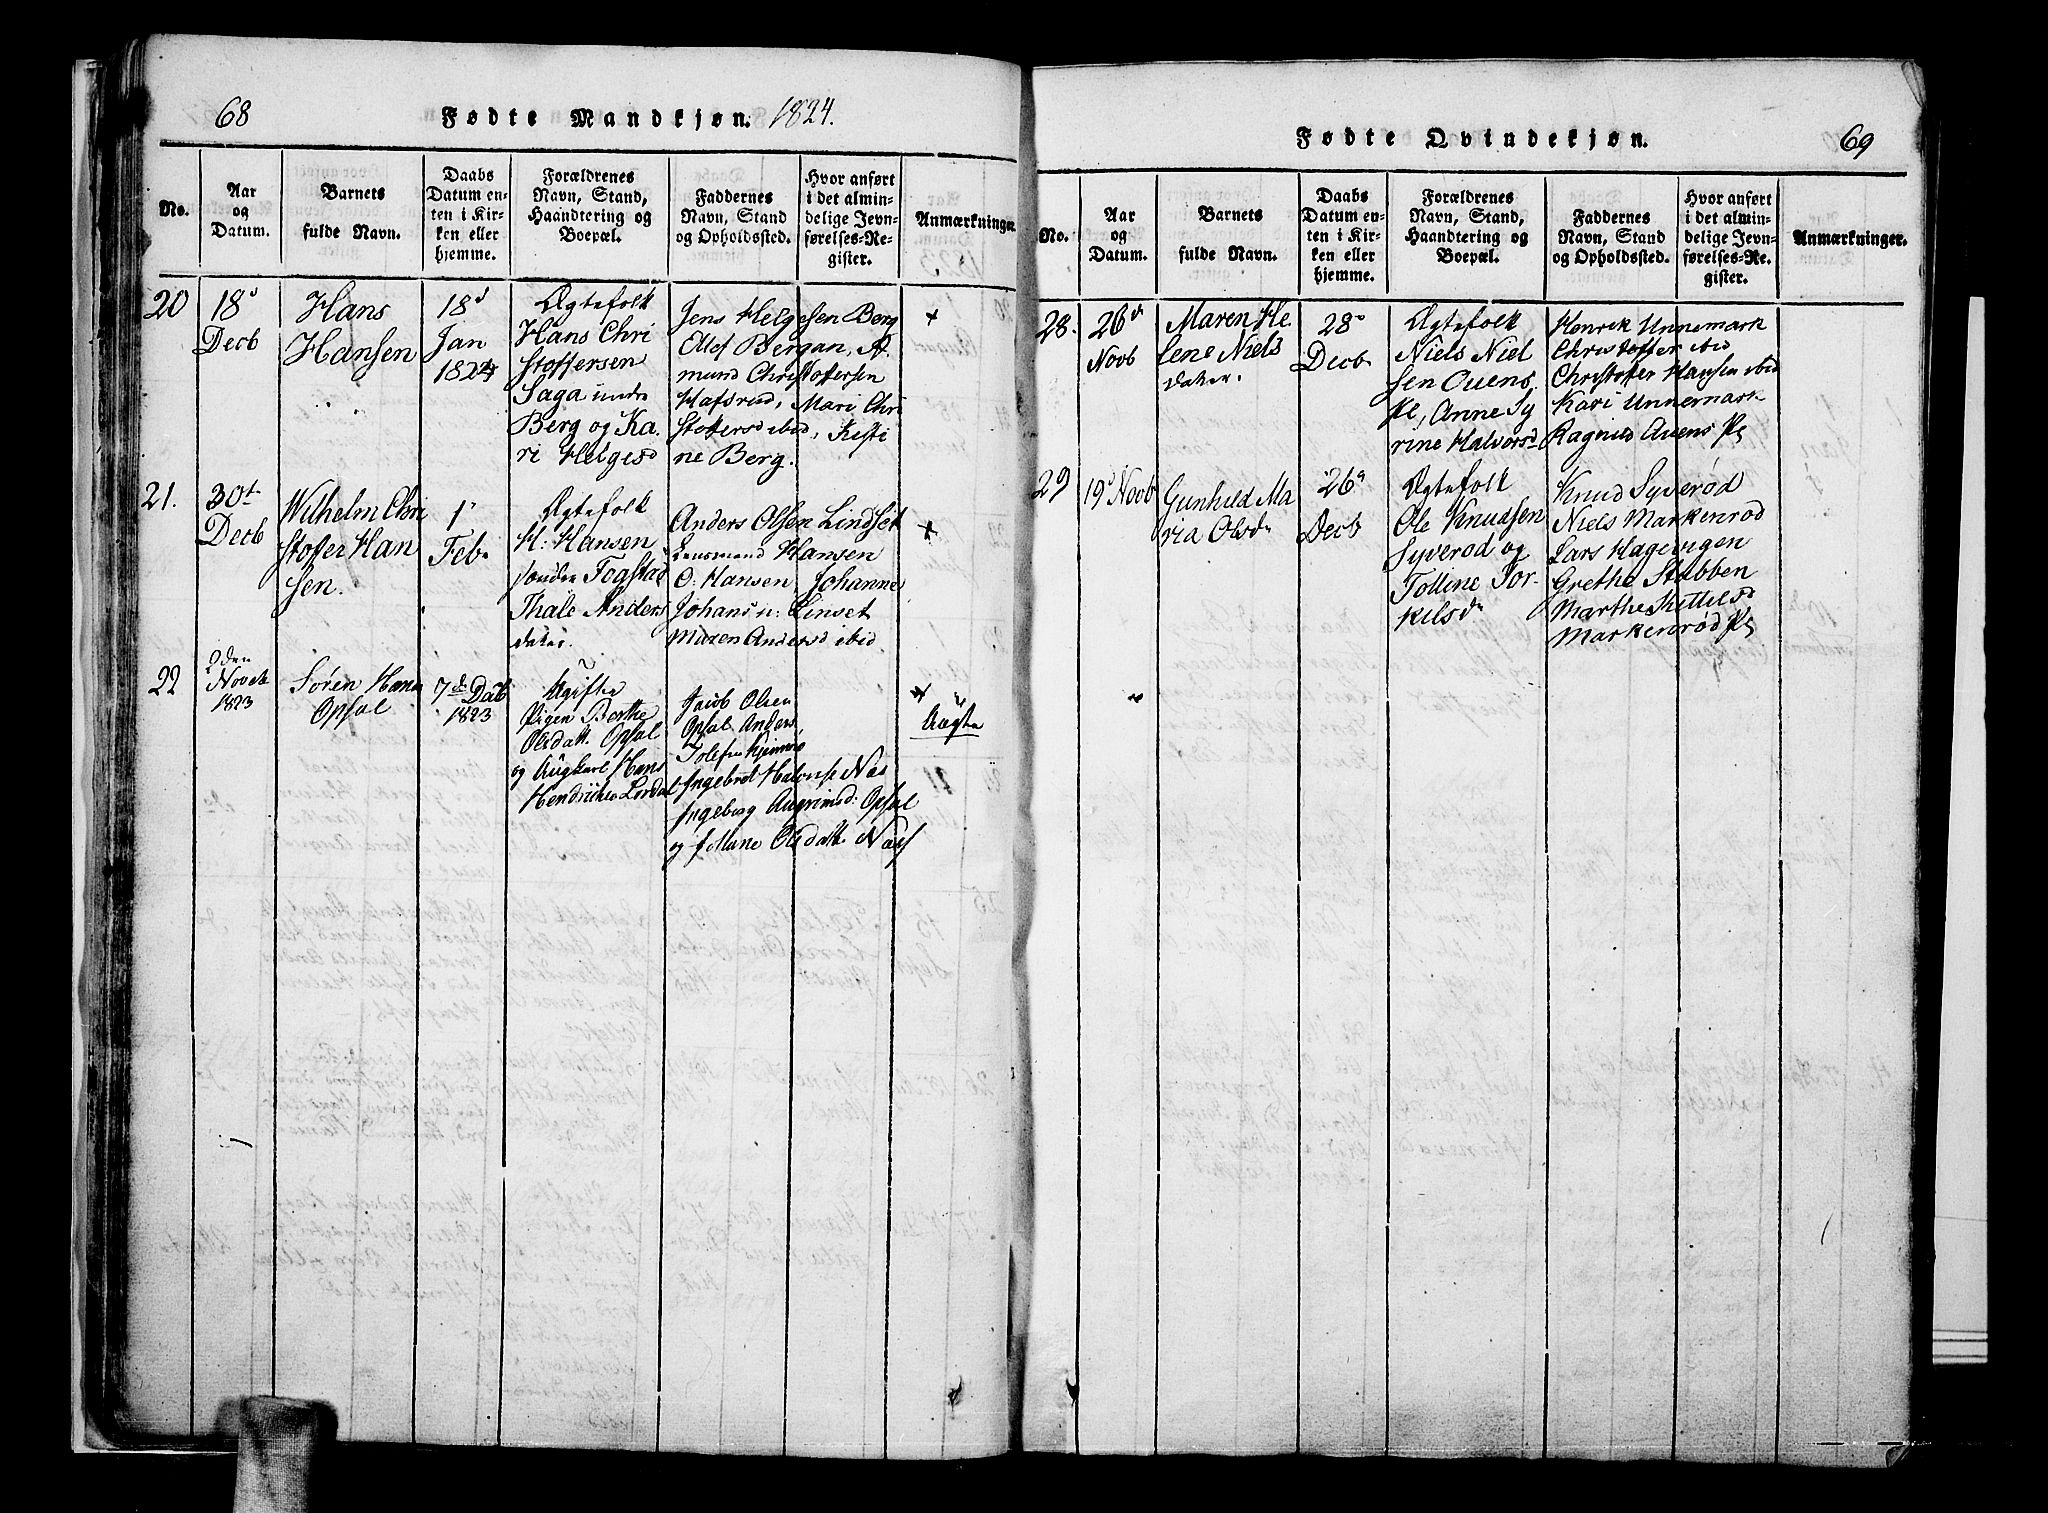 68
Fødte Mandkjøn. 1824.
No.
Aar
og
Datum.
Barnets
fulde Navn.
Daabs
Datum en-
ten i Kir-
ken eller
hjemme.
Forældrenes
Navn, Stand,
Haandtering og
Boepæl.
Faddernes
Navn, Stand
og Opholdssted.
Hvor anført
i det almin-
delige Jevn-
førelses-Re-
gister.
Anmærkninger.
20
18d
Decb
Hans
Hansen
18d
Jan
1824
Ægtefolk
Hans Chri
stoffersen
Saga under
Berg og Ka
ri Helgesd
Jens Helgesen Berg
Ellef Bergan, A
mund Christoffersen
Hafsrud, Mari Chri
stoffersd ibid, Kisti
ne Berg.
+
21.
30t
Decb
Wilhelm Chri
stoffer Han
sen.
1
Feb
Ægtefolk
H: Hansen
sønder Fogstad
Thale Anders
datter.
Anders Olsen Lindset
Lensmand Hansen
O: Hansen, Johanne
Johans n: Linset
Maren Andersd ibid
+
22
2den
Novbr
1823
Søren Hans
Opsal
7de Dcb
1823
Ugifte
Pigen Berthe
Olsdatt. Opsal
og Ungkarl Hans
Hendrichs Lordal
Jacob Olsen
Opsal Anders
Ingebret Halvorse Næs
Ingeberg Asgrimsd: Opsal
og Olsdatt Næss
+
Uægte
69
Fødte Qvindekjøn.
No.
Aar
og
Datum.
Barnets
fulde Navn.
Daabs
Datum en-
ten i Kir-
ken eller
hjemme.
Forældrenes
Navn, Stand,
Haandtering og
Boepæl.
Faddernes
Navn, Stand
og Opholdssted.
Hvor anført
i det almin-
delige Jevn-
førelses-Re-
gister.
Anmærkninger.
28.
26d
Novb
Maren He
lene Niels
datter.
28
Decb
Ægtefolk
Niels Niel
sen Ouens
Pl, Anne Sy
rine Halvorsd
Henrik Unnemark
Christoffer ibid
Christoffer Hansen ibid
Kari Unnemark
Ragnild Auens Pl
29
19 Novb
Gunhild Ma
ria Olsdr
26
Decb
Ægtefolk
Ole Knudsen
Syverød og
Tolline Tor-
kilsdr
Knud Syverød
Niels Markenrød
Lars Hagevigen
Grethe Stubben
Marthe Kittilsd
Markenrød Pl